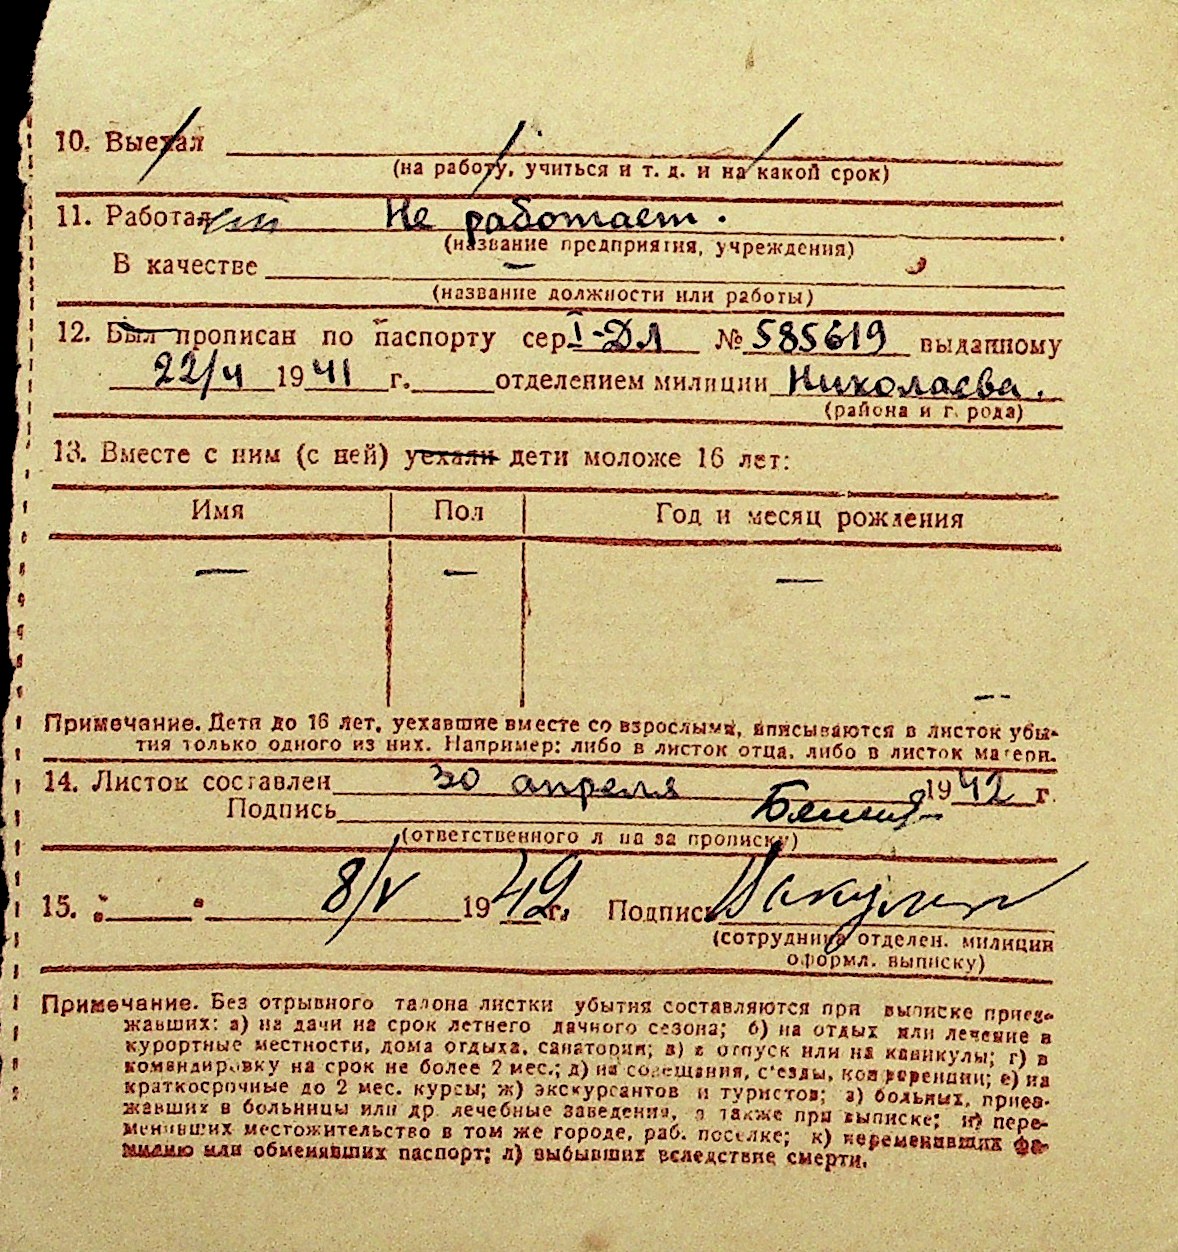 10. Выехал
(на работу, учиться и т. д. и на какой срок)
11. Работал Не работает.
(название предприятия, учреждения)
В качестве —
(название должности или работы)
12. Был прописан по паспорту сер. I-ДЛ № 585619 выданному
22/4 1941 г. отделением милиции Николаева.
(района и г рода)
13. Вместе с ним (с ней) уехали дети моложе 16 лет:
Имя Пол Год и месяц рождения
— — —
Примечание. Дети до 16 лет, уехавшие вместе со взрослыми, вписываются в листок убы-
тия только одного из них. Например: либо в листок отца, либо в листок матери.
14. Листок составлен 30 апреля 1942 г.
Подпись
(ответственного л ца за прописку)
15. „ “ 8/V 1942 г. Подпись
(сотрудника отделен. милиции
оформл. выписку)
Примечание. Без отрывного талона листки убытия составляются при выписке приез-
жавших: а) на дачи на срок летнего дачного сезона; б) на отдых или лечение в
курортные местности, дома отдыха, санатории; в) в отпуск или на каникулы; г) в
командировку на срок не более 2 мес.; д) на совещания, с'езды, конференции; е) на
краткосрочные до 2 мес. курсы; ж) экскурсантов и туристов; з) больных, приез-
жавших в больницы или др. лечебные заведения, а также при выписке; и) пере-
менивших местожительство в том же городе, раб. поселке; к) переменивших фа-
милию или обменявших паспорт; л) выбывших вследствие смерти.